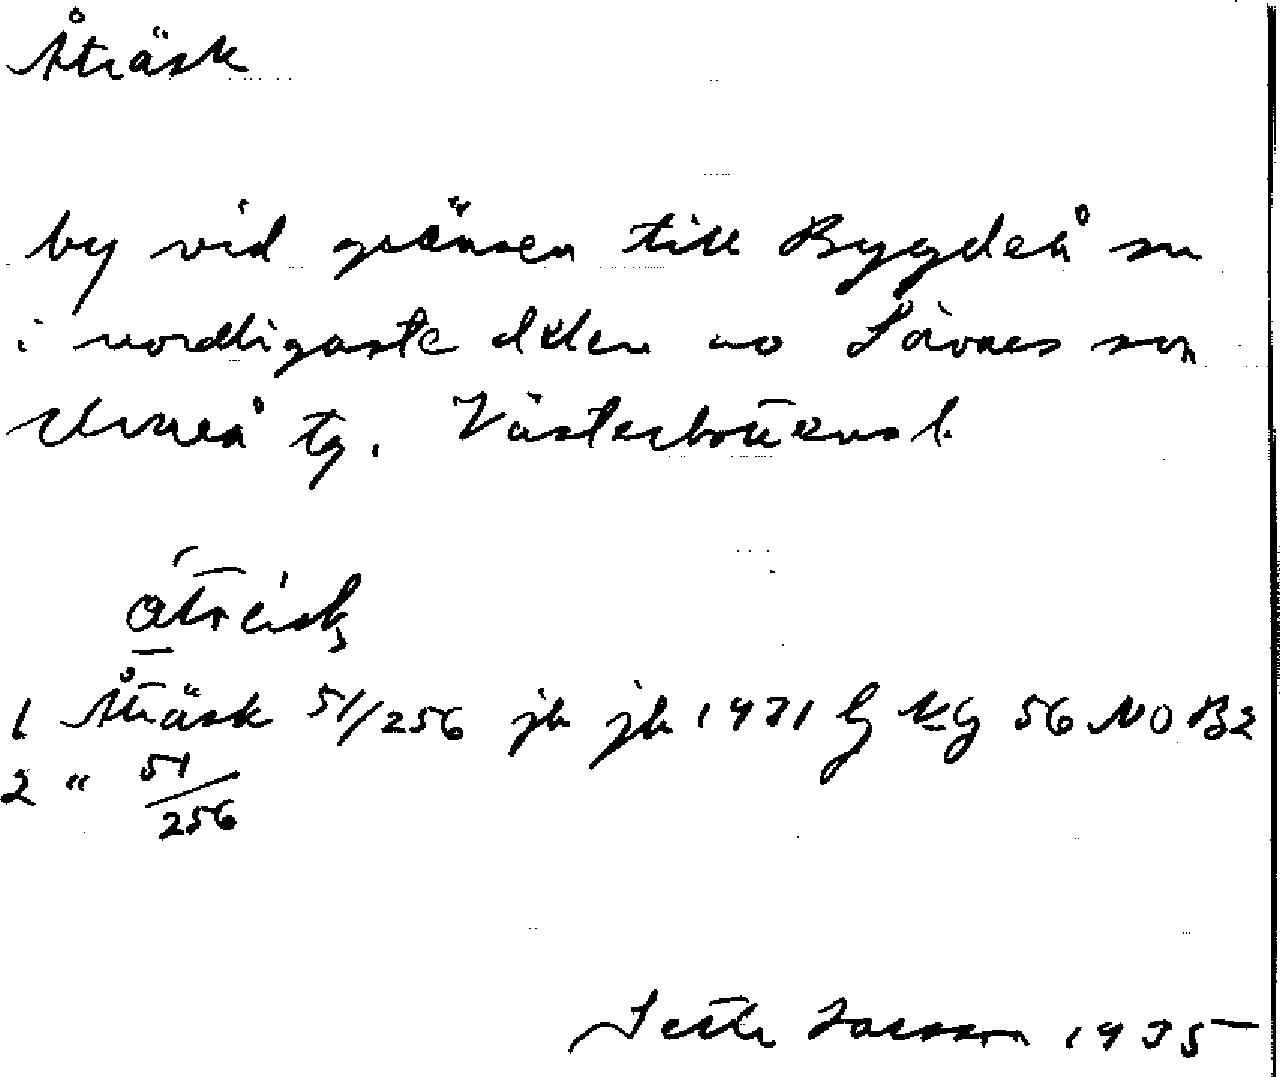 Åträsk
by vid gränsen till Bygdeå sn
i nordligaste delen av Sävars sn
Umeå tg. Västerbottens l.
åträsk
1 Åträsk 51/256 jb jb 1971 G KG 56 NO B2
2 " 51/256
Seth Larsson 1975